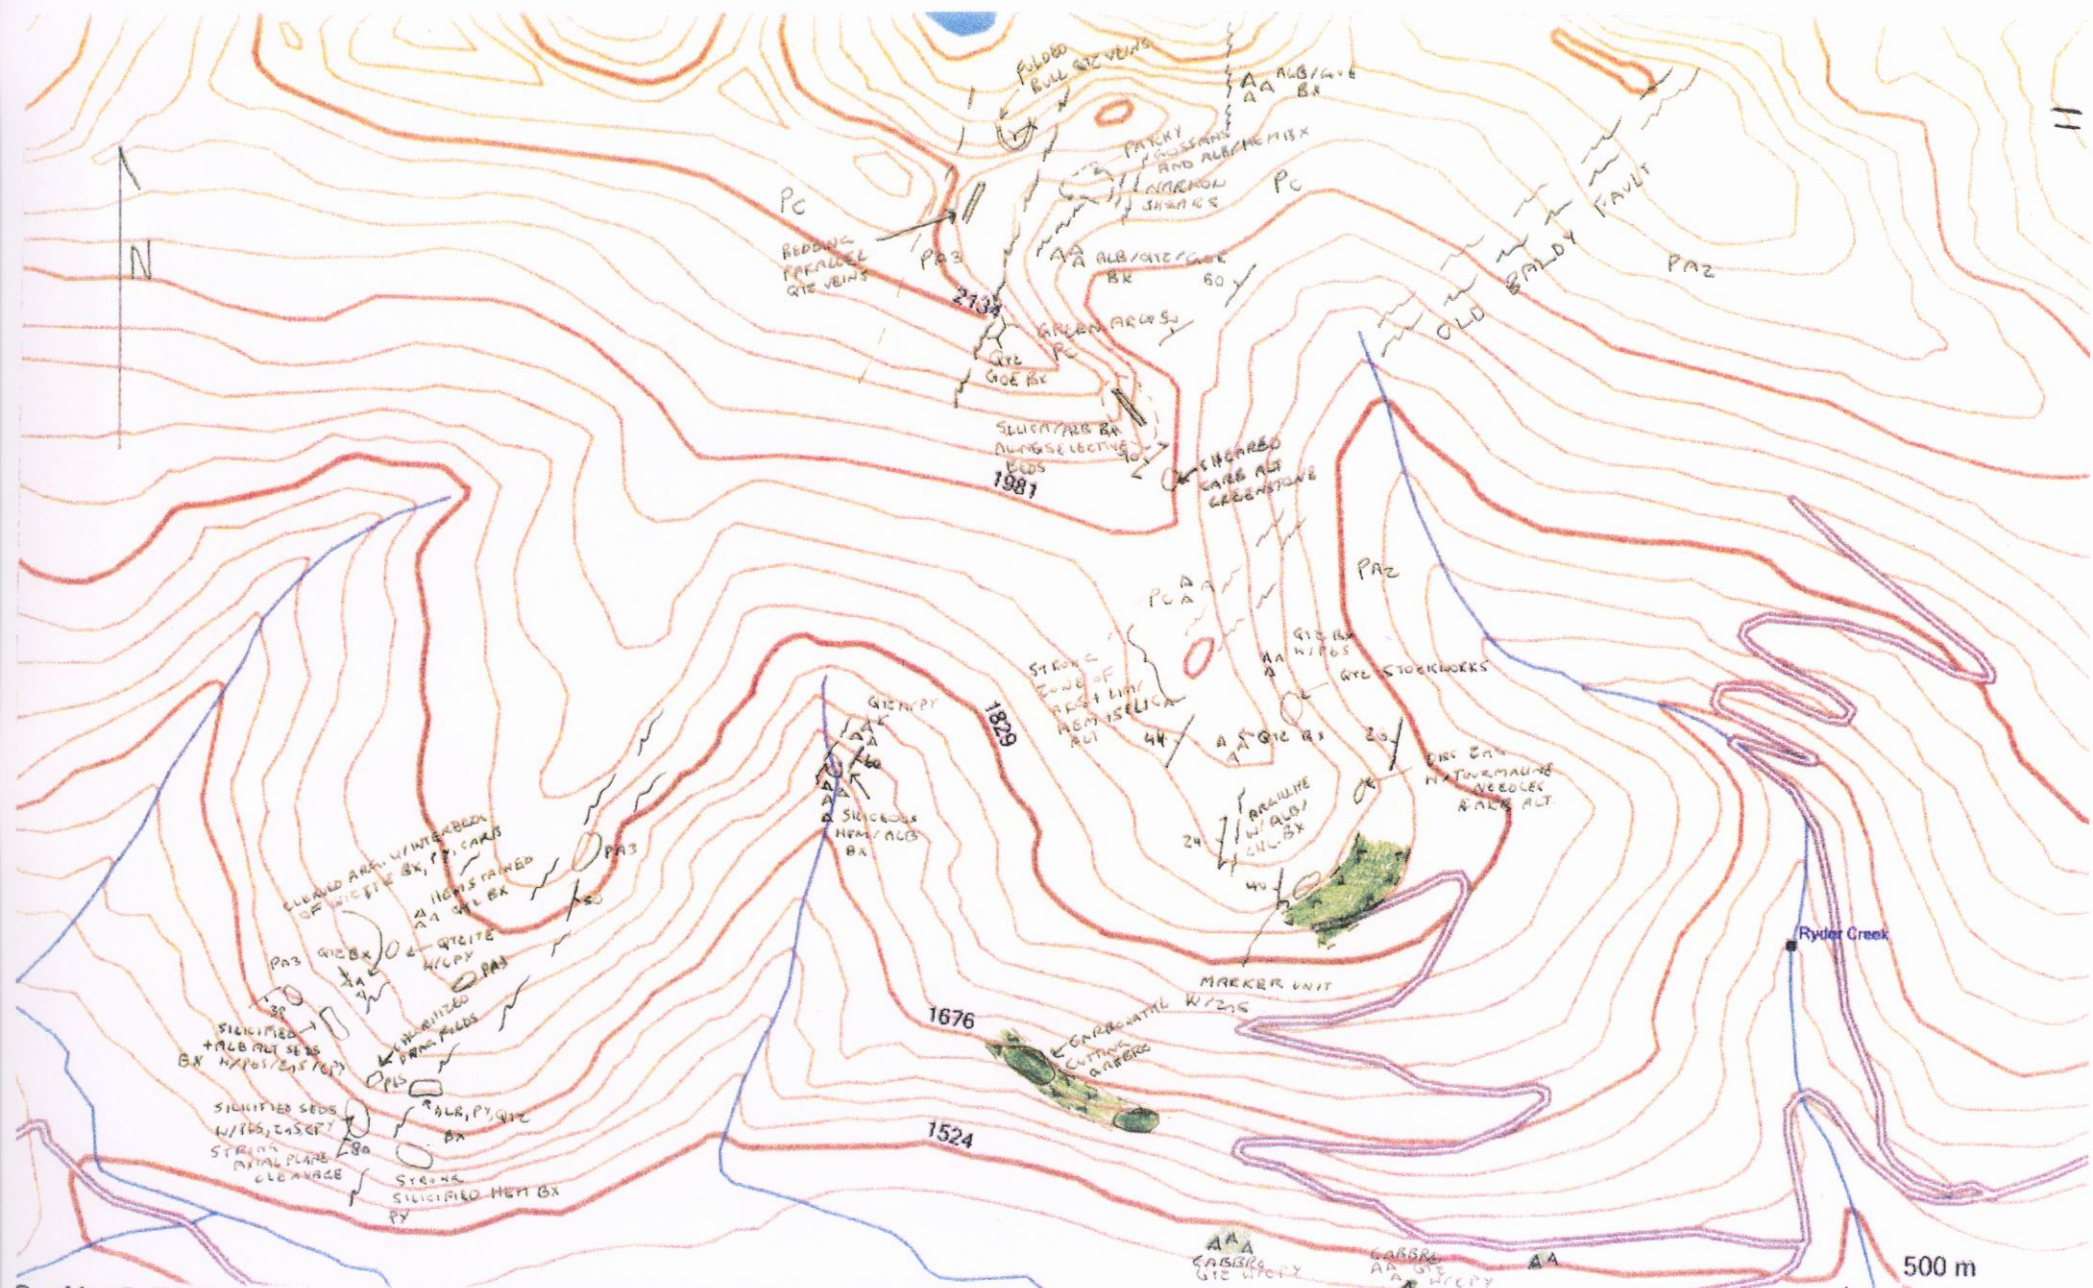 FOLDED
BULL QTZ VEINS
ALB/GOE
BX
PATCHY
GOSSANS
AND ALB/HEM BX
NARROW
SHEARS
N
PC
PC
BEDDING
PARALLEL
QTZ VEINS
PA3
ALB/QTZ/GOE
BX
60
OLD BALDY FAULT
PA2
2134
GREEN ARG
PC
QTZ
GOE BX
SILICA/ALB BX
ALONG SELECTIVE
BEDS
1981
SHEARED
CARB ALT
GREENSTONE
PA2
PC
QTZ BX
W/PbS
QTZ STOCKWORKS
STRONG
ZONE OF
HEM/SILICA
ALT
44
QTZ BX
20
W/TOURMALINE
NEEDLES
ALT.
1829
QTZ/PY
60
SILICEOUS
HEM/ALB
BX
ARGILLITE
W/ALB/
CHL BX
24
40
MARKER UNIT
PA3
50
CLEAVED ARG. W/INTERBEDS
OF QTZITE BX, PY, CARB
HEM STAINED
QTZ BX
PA3
QTZ BX
QTZITE
W/CPY
PA3
30
SILICIFIED
+ ALB ALT SEDS
BX W/PbS/ZnS/CPY
DRAG FOLDS
PbS
ALB, PY, QTZ
BX
SILICIFIED SEDS
W/PbS, ZnS, CPY
80
STRONG
AXIAL PLANE
CLEAVAGE
STRONG
SILICIFIED HEM BX
PY
1676
CARBONATE W/ZnS
CUTTING
GABBRO
1524
Ryder Creek
GABBRO
QTZ W/CPY
GABBRO
QTZ
W/CPY
500 m